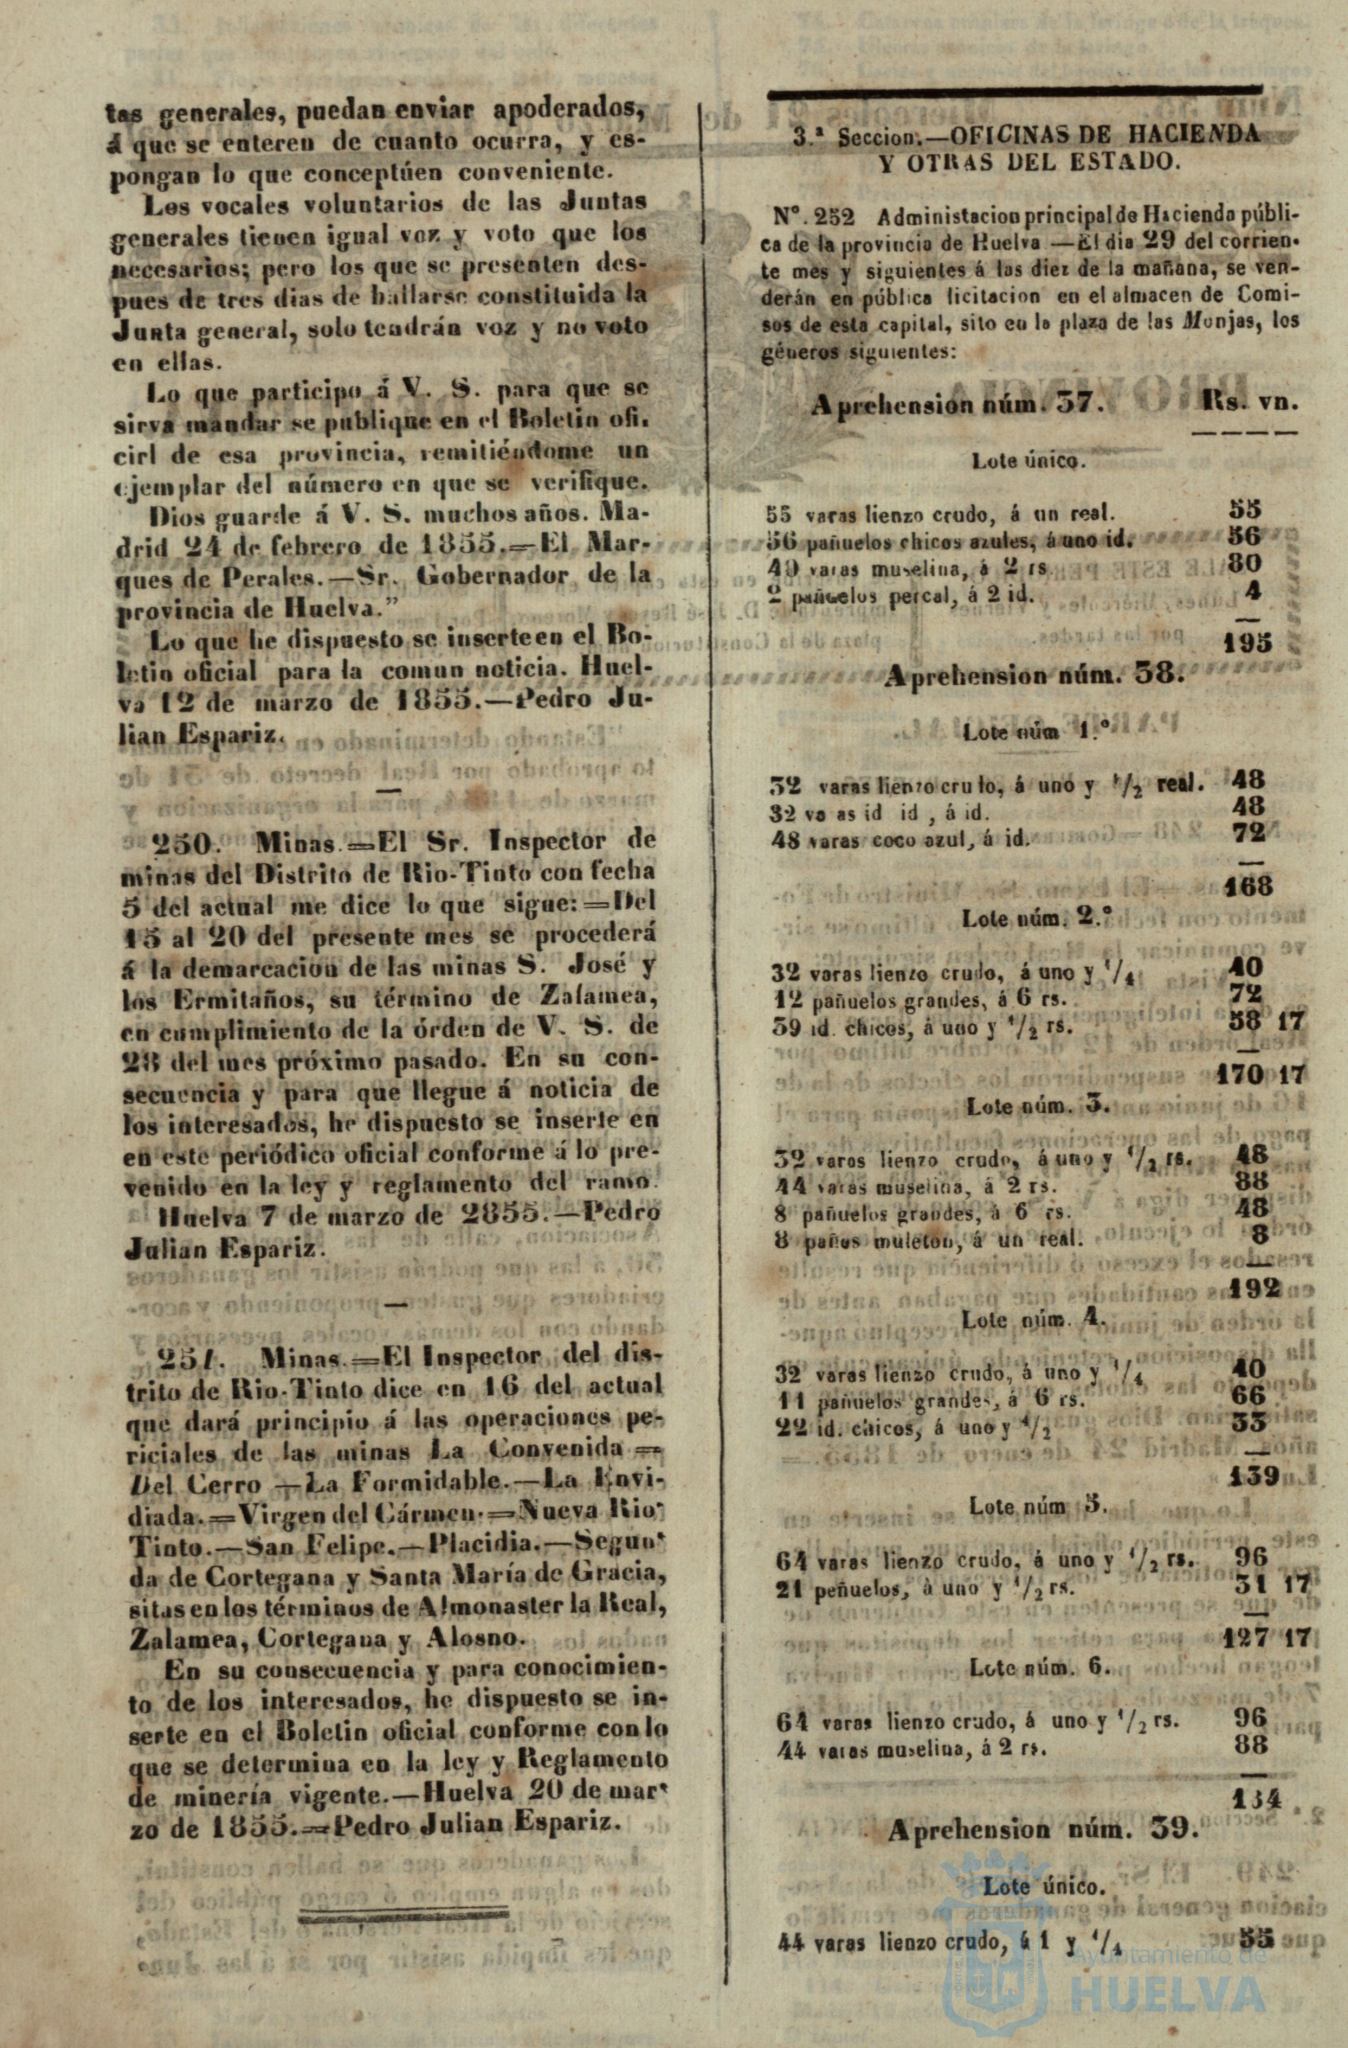 tas generales, puedan enviar apoderados,
á que se enteren de cuanto ocurra, y es-
pongan lo que conceptúen conveniente.
Los vocales voluntarios de las Juntas
generales tienen igual voz y voto que los
necesarios; pero los que se presenten des-
pues de tres dias de hallarse constituida la
Junta general, solo tendrán voz y no voto
en ellas.
Lo que participo á V. S. para que se
sirva mandar se publique en el Boletin ofi.
cirl de esa provincia, remitiéndome un
ejemplar del número en que se verifique.
Dios guarde á V. S. muchos años. Ma-
drid 24 de febrero de 1855.=El Mar-
ques de Perales.—Sr. Gobernador de la
provincia de Huelva."
Lo que he dispuesto se inserte en el Bo-
letin oficial para la comun noticia. Huel-
va 12 de marzo de 1855.—Pedro Ju-
lian Espariz.
250. Minas.=El Sr. Inspector de
minas del Distrito de Rio-Tinto con fecha
5 del actual me dice lo que sigue:=Del
15 al 20 del presente mes se procederá
á la demarcacion de las minas S. José y
los Ermitaños, su término de Zalamea,
en cumplimiento de la órden de V. S. de
28 del mes próximo pasado. En su con-
secuencia y para que llegue á noticia de
los interesados, he dispuesto se inserte en
en este periódico oficial conforme á lo pre-
venido en la ley y reglamento del ramo.
Huelva 7 de marzo de 2855.—Pedro
Julian Espariz.
251. Minas.=El Inspector del dis-
trito de Rio-Tinto dice en 16 del actual
que dará principio á las operaciones pe-
riciales de las minas La Convenida=
Del Cerro—La Formidable.—La Envi-
diada.=Virgen del Cármen.=Nueva Rio-
Tinto.—San Felipe.—Placidia.—Segun-
da de Cortegana y Santa María de Gracia,
sitas en los términos de Almonaster la Real,
Zalamea, Cortegana y Alosno.
En su consecuencia y para conocimien-
to de los interesados, he dispuesto se in-
serte en el Boletin oficial conforme con lo
que se determina en la ley y Reglamento
de minería vigente.—Huelva 20 de mar-
zo de 1855.=Pedro Julian Espariz.
3.ª Seccion.—OFICINAS DE HACIENDA
Y OTRAS DEL ESTADO.
N°. 252 Administacion principal de Hacienda públi-
ca de la provincia de Huelva—El dia 29 del corrien-
te mes y siguientes á las diez de la mañana, se ven-
derán en pública licitacion en el almacen de Comi-
sos de esta capital, sito en la plaza de las Monjas, los
géneros siguientes:
Aprehension núm. 37. Rs. vn.
Lote único.
55 varas lienzo crudo, á un real. 55
56 pañuelos chicos azules, á uno id. 56
40 varas muselina, á 2 rs. 80
2 pañuelos percal, á 2 id. 4
195
Aprehension núm. 38.
Lote núm 1.°
32 varas lienzo crudo, á uno y 1/2 real. 48
32 va as id id , á id. 48
48 varas coco azul, á id. 72
168
Lote núm. 2.°
32 varas lienzo crudo, á uno y 1/4 40
12 pañuelos grandes, á 6 rs. 72
39 id. chicos, á uno y 1/2 rs. 58 17
170 17
Lote núm. 3.
32 varas lienzo crudo, á uno y 1/2 rs. 48
44 varas muselina, á 2 rs. 88
8 pañuelos grandes, á 6 rs. 48
8 paños muleton, á un real. 8
192
Lote núm. 4.
32 varas lienzo crudo, á uno y 1/4 40
11 pañuelos grandes, á 6 rs. 66
22 id. chicos, á uno y 1/2 33
139
Lote núm 5.
64 varas lienzo crudo, á uno y 1/2 rs. 96
21 peñuelos, á uno y 1/2 rs. 31 17
127 17
Lote núm. 6.
64 varas lienzo crudo, á uno y 1/2 rs. 96
44 varas muselina, á 2 rs. 88
184
Aprehension núm. 39.
Lote único.
44 varas lienzo crudo, á 1 y 1/4 55
Ayuntamiento de
HUELVA